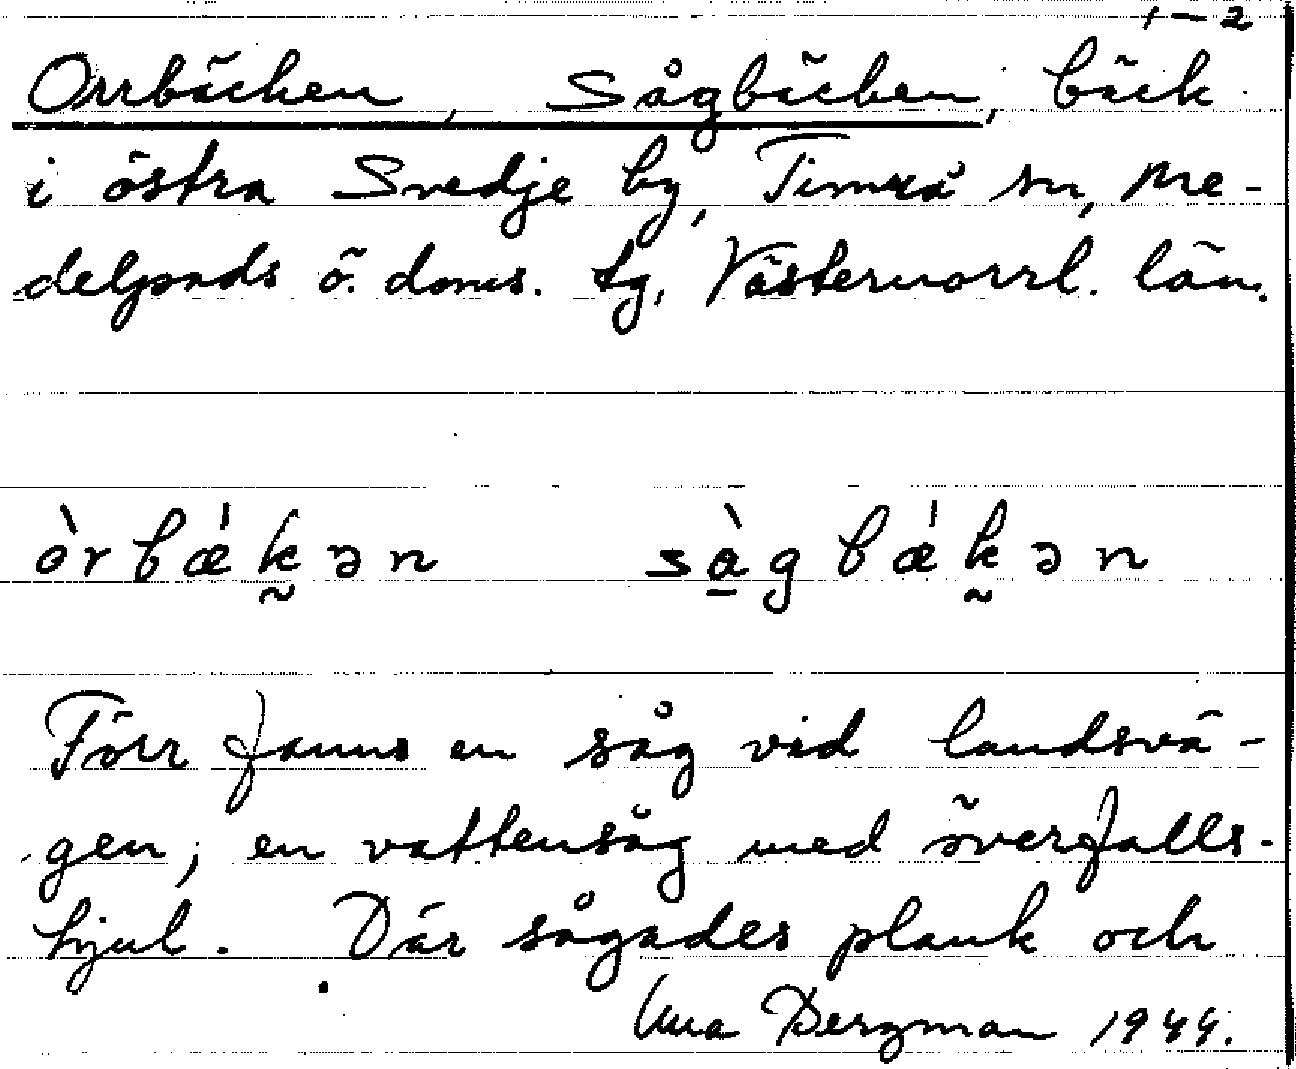 1-2
Orrbäcken, Sågbäcken, bäck
i östra Svedje by, Timrå sn, Me-
delpads ö. doms. tg, Västernorrl. län.
òrbǽk̰ən sà̱gbǽk̰ən
Förr fanns en såg vid landsvä-
gen, en vattensåg med överfalls-
hjul. Där sågades plank och
Bergman 1944.